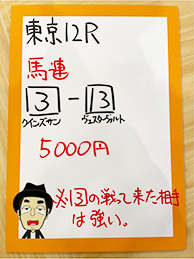 東京12R
馬連
3-13
クインズサン ヴュスターヴァルト
5000円
※13の戦って来た相手
は強い。